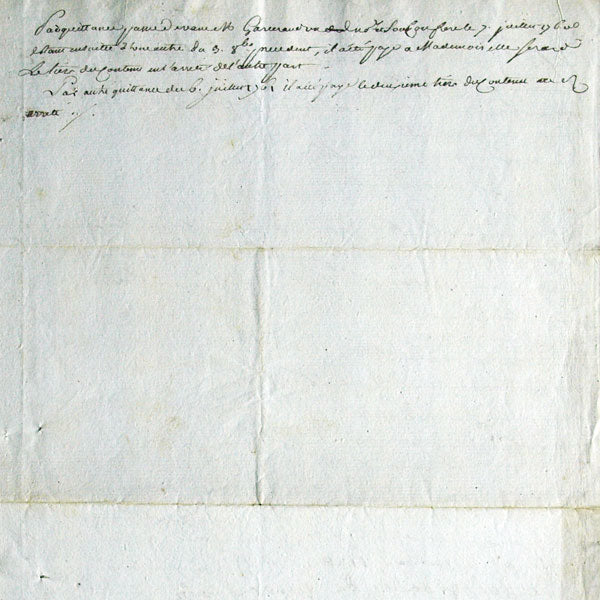 Par quittance passée devant Me notre soussigné le 7. juillet 1760
étant ensuitte d'une autre du 3. 8bre precedent, il a été payé a Mademoiselle
Le tiers du Contenu en l'arreté de l'autre part.
Par autre quittance du 6. juillet 1761 il a été payé le deuxieme tiers du Contenu
arreté